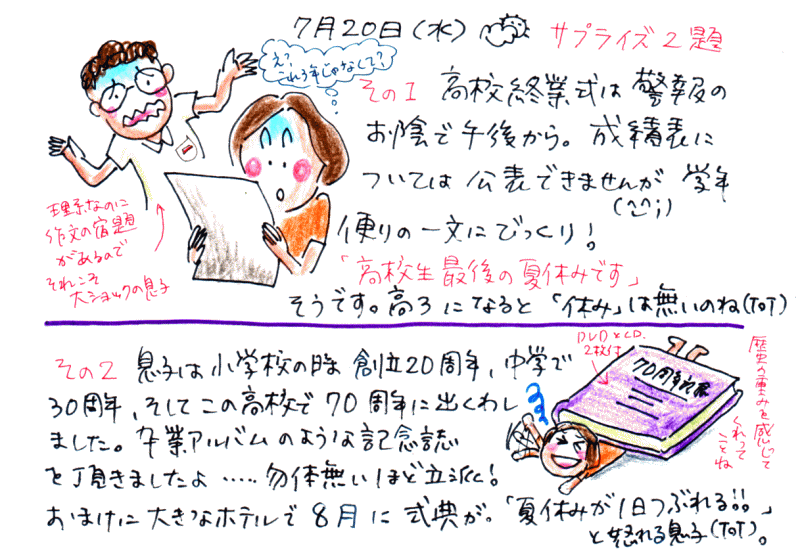 7月20日(水)
サプライズ2題
えっ
これろ年じゃなくて?
その1 高校終業式は警報の
お陰で午後から。成績表に
ついては公表できませんが 学年
(^^;)
便りの一文にびっくり!
「高校生最後の夏休みです」
そうです。高3になると「休み」は無いのね(ToT)
理系なのに
作文の宿題
があるので
それこそ
大ショックの息子
その2 息子は小学校の時 創立20周年、中学で
30周年、そしてこの高校で70周年に出くわし
ました。卒業アルバムのような記念誌
を頂きましたよ……勿体無いほど立派に!
おまけに大きなホテルで8月に式典が。「夏休みが1日つぶれる!!」
と怒れる息子(ToT)。
DVDとCD
2枚付
70周年記念
歴史の重みを感じて
くれって
ことね